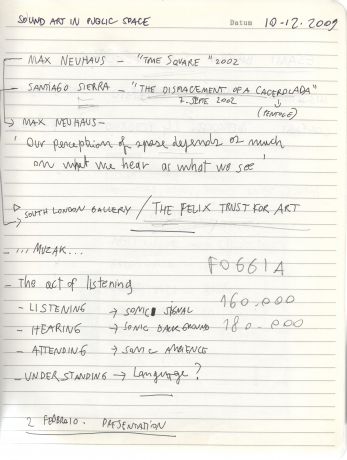 SOUND ART IN PUBLIC SPACE Datum 10-12.2009
MAX NEUHAUS - "TIME SQUARE" 2002
SANTIAGO SIERRA - "THE DISPLACEMENT OF A CACEROLADA"
7. SEPTE 2002 (PENTOLE)
MAX NEUHAUS-
'Our perception of space depends as much
on what we hear as what we see'
SOUTH LONDON GALLERY / THE FELIX TRUST FOR ART
- ... MUZAK...
FOGGIA
- The act of listening
160.000
- LISTENING → SONIC SIGNAL
- HEARING → SONIC BACKGROUND 180.000
- ATTENDING → SONIC AMBIENCE
- UNDERSTANDING → Language?
2 FEBBRAIO. PRESENTATION